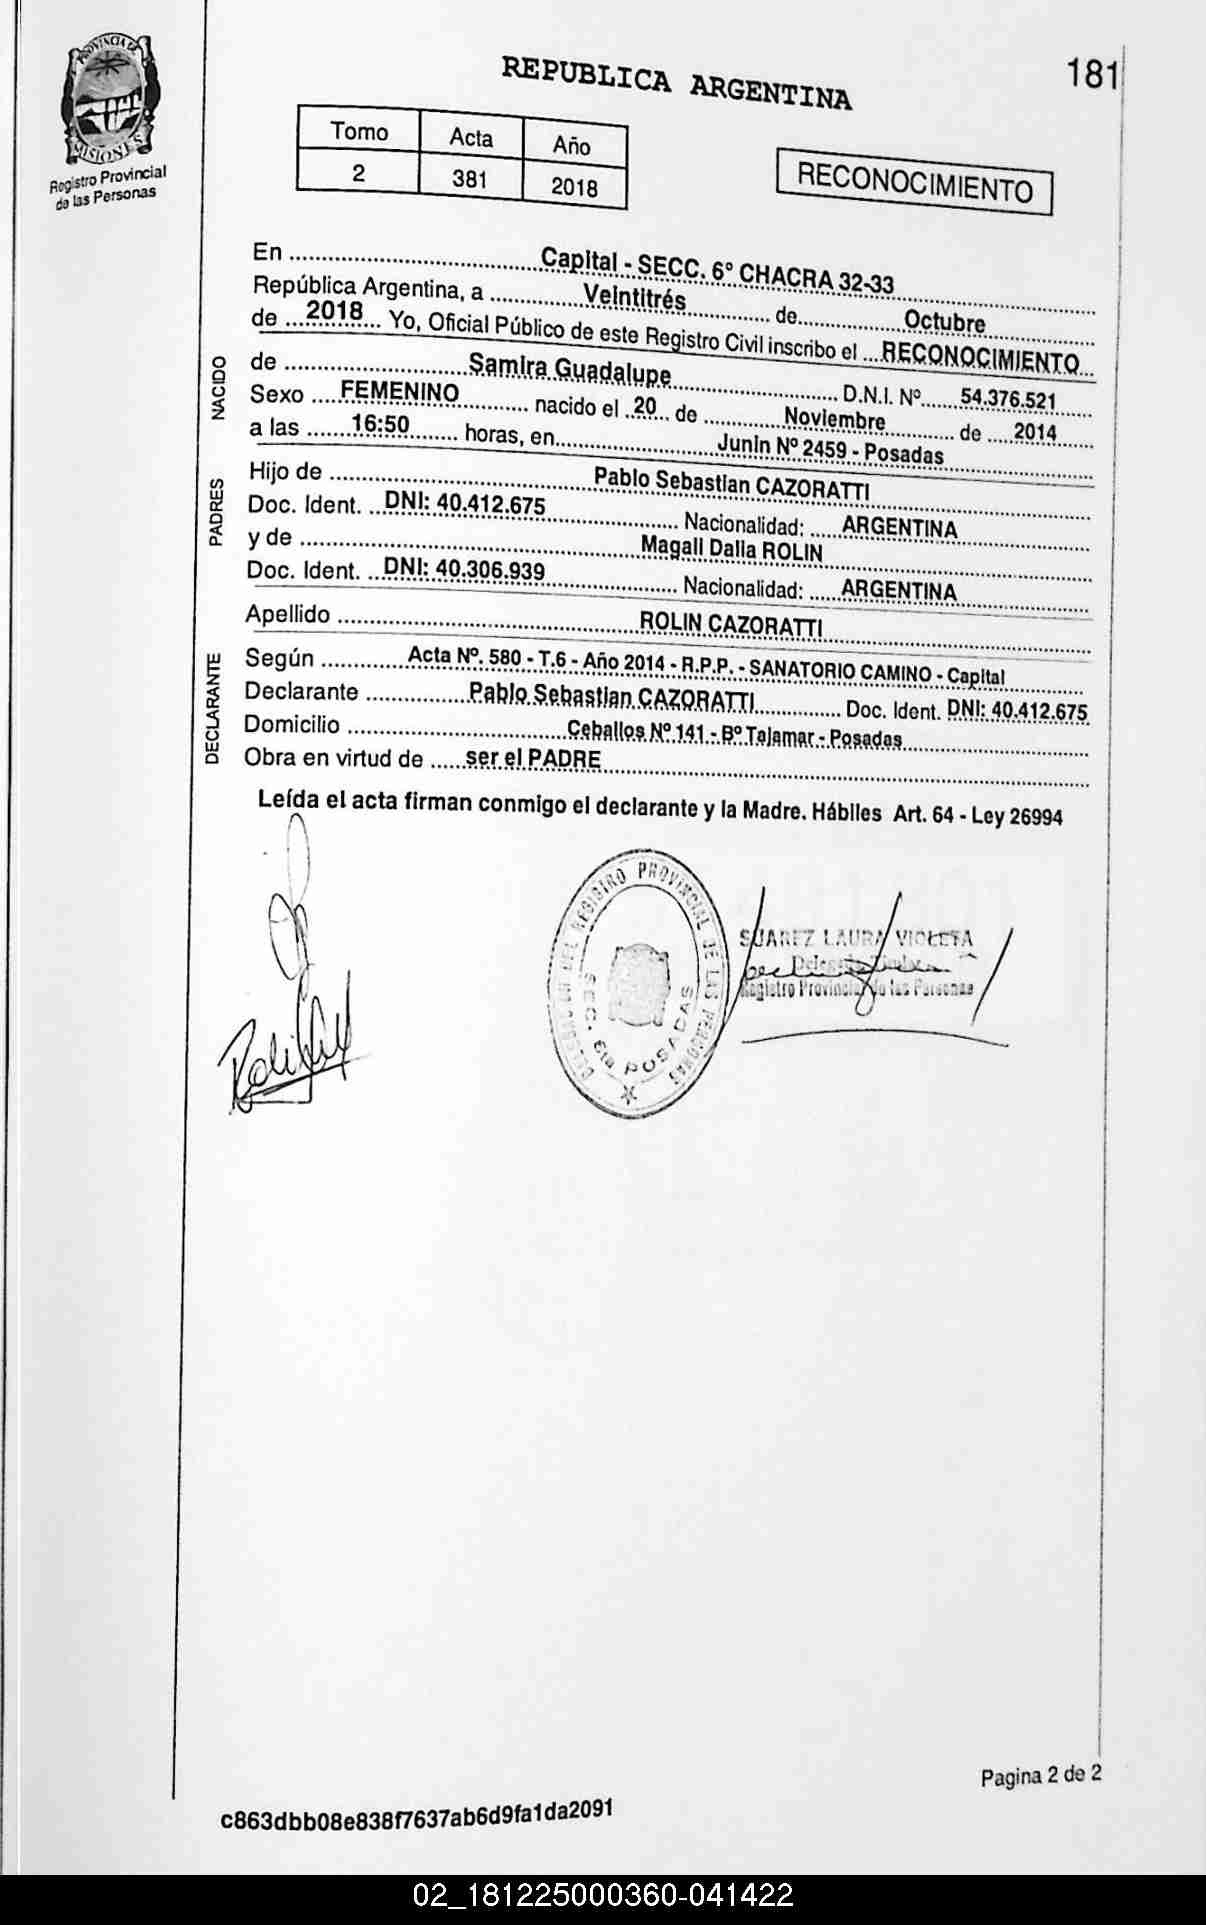 PROVINCIA DE
MISIONES
Registro Provincial
de las Personas
REPUBLICA ARGENTINA
181
Tomo Acta Año
2 381 2018
RECONOCIMIENTO
En ..... Capital - SECC. 6º CHACRA 32-33 .....
República Argentina, a ..... Veintitrés ..... de ..... Octubre .....
de ..... 2018 ..... Yo, Oficial Público de este Registro Civil inscribo el ... RECONOCIMIENTO ...
NACIDO
de ..... Samira Guadalupe ..... D.N.I. Nº ..... 54.376.521 .....
Sexo ..... FEMENINO ..... nacido el ..20.. de ..... Noviembre ..... de ..... 2014 .....
a las ..... 16:50 ..... horas, en ..... Junin Nº 2459 - Posadas .....
PADRES
Hijo de ..... Pablo Sebastian CAZORATTI .....
Doc. Ident. ... DNI: 40.412.675 ..... Nacionalidad: ..... ARGENTINA .....
y de ..... Magali Dalia ROLIN .....
Doc. Ident. ... DNI: 40.306.939 ..... Nacionalidad: ..... ARGENTINA .....
Apellido ..... ROLIN CAZORATTI .....
DECLARANTE
Según ..... Acta Nº. 580 - T.6 - Año 2014 - R.P.P. - SANATORIO CAMINO - Capital .....
Declarante ..... Pablo Sebastian CAZORATTI ..... Doc. Ident. DNI: 40.412.675
Domicilio ..... Ceballos Nº 141 - Bº Tajamar - Posadas .....
Obra en virtud de ..... ser el PADRE .....
Leída el acta firman conmigo el declarante y la Madre. Hábiles Art. 64 - Ley 26994
DELEGACION DEL REGISTRO PROVINCIAL DE LAS PERSONAS
SECC. 6ta POSADAS
SUAREZ LAURA VIOLETA
Delegada Titular
Registro Provincial de las Personas
Pagina 2 de 2
c863dbb08e838f7637ab6d9fa1da2091
02_181225000360-041422